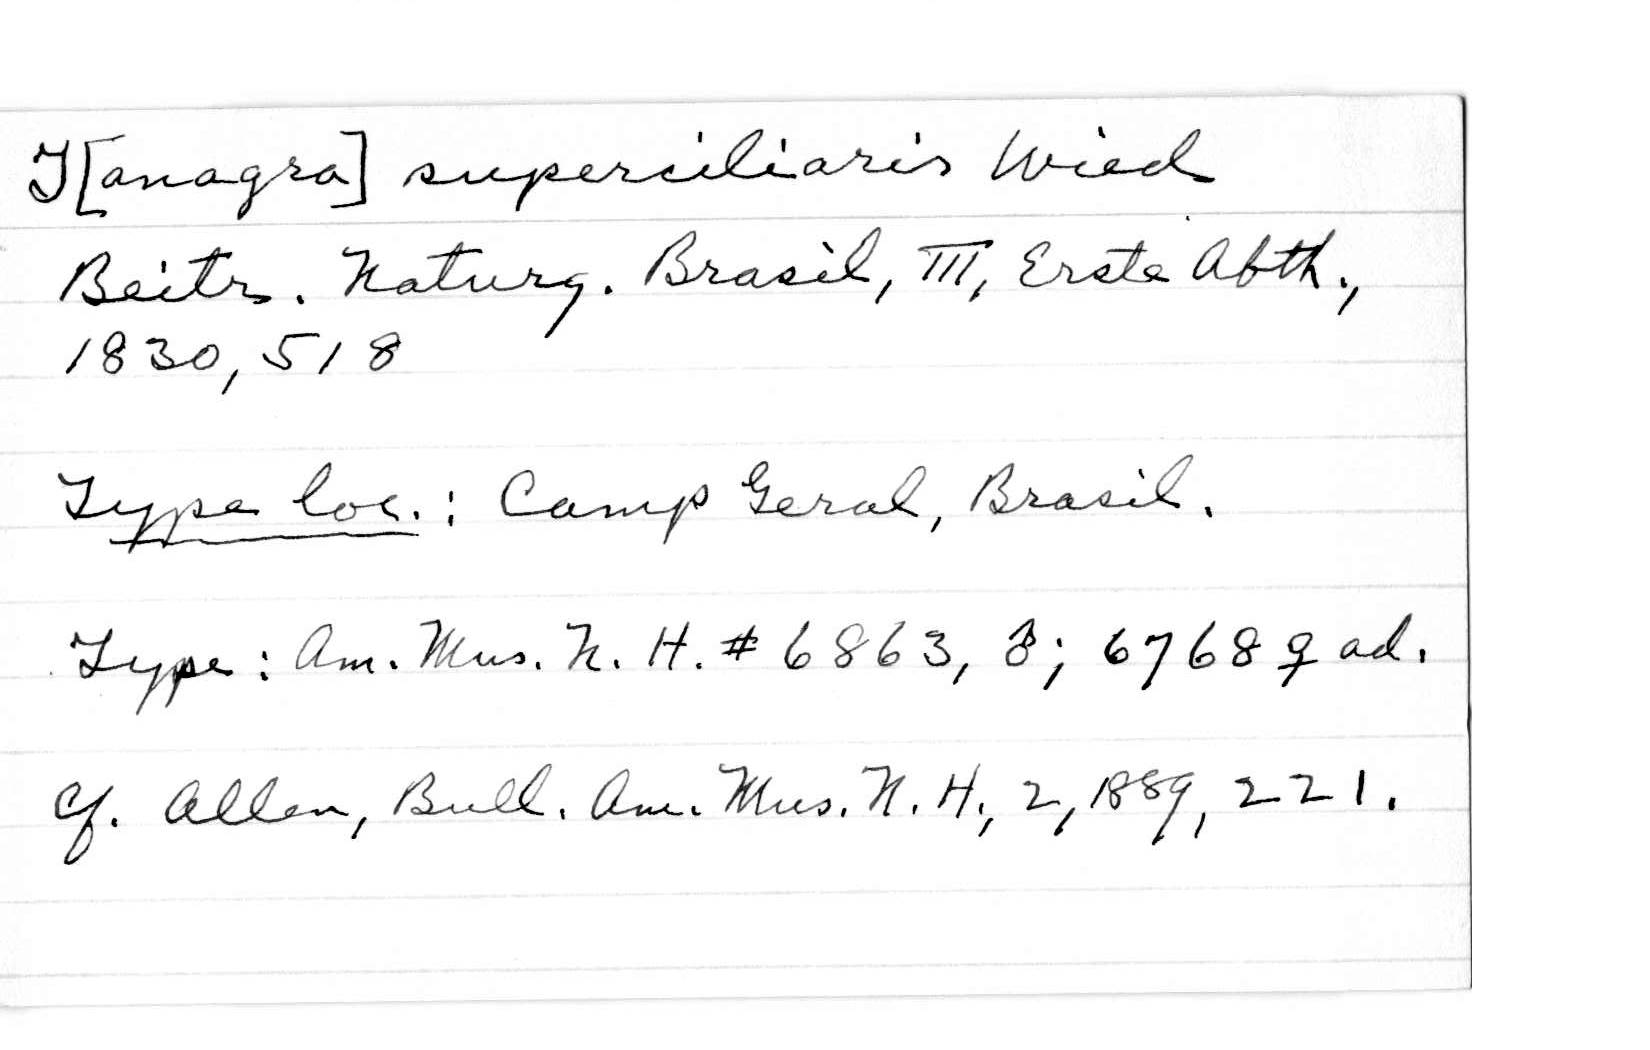 T[anagra] superciliaris Wied
Beitr. Naturg. Brasil, III, Erste Abth.,
1830, 518
Type loc.: Camp Geral, Brasil.
Type: Am. Mus. N. H. # 6863, ♂; 6768 ♀ ad.
Cf. Allen, Bull. Am. Mus. N. H., 2, 1889, 221.